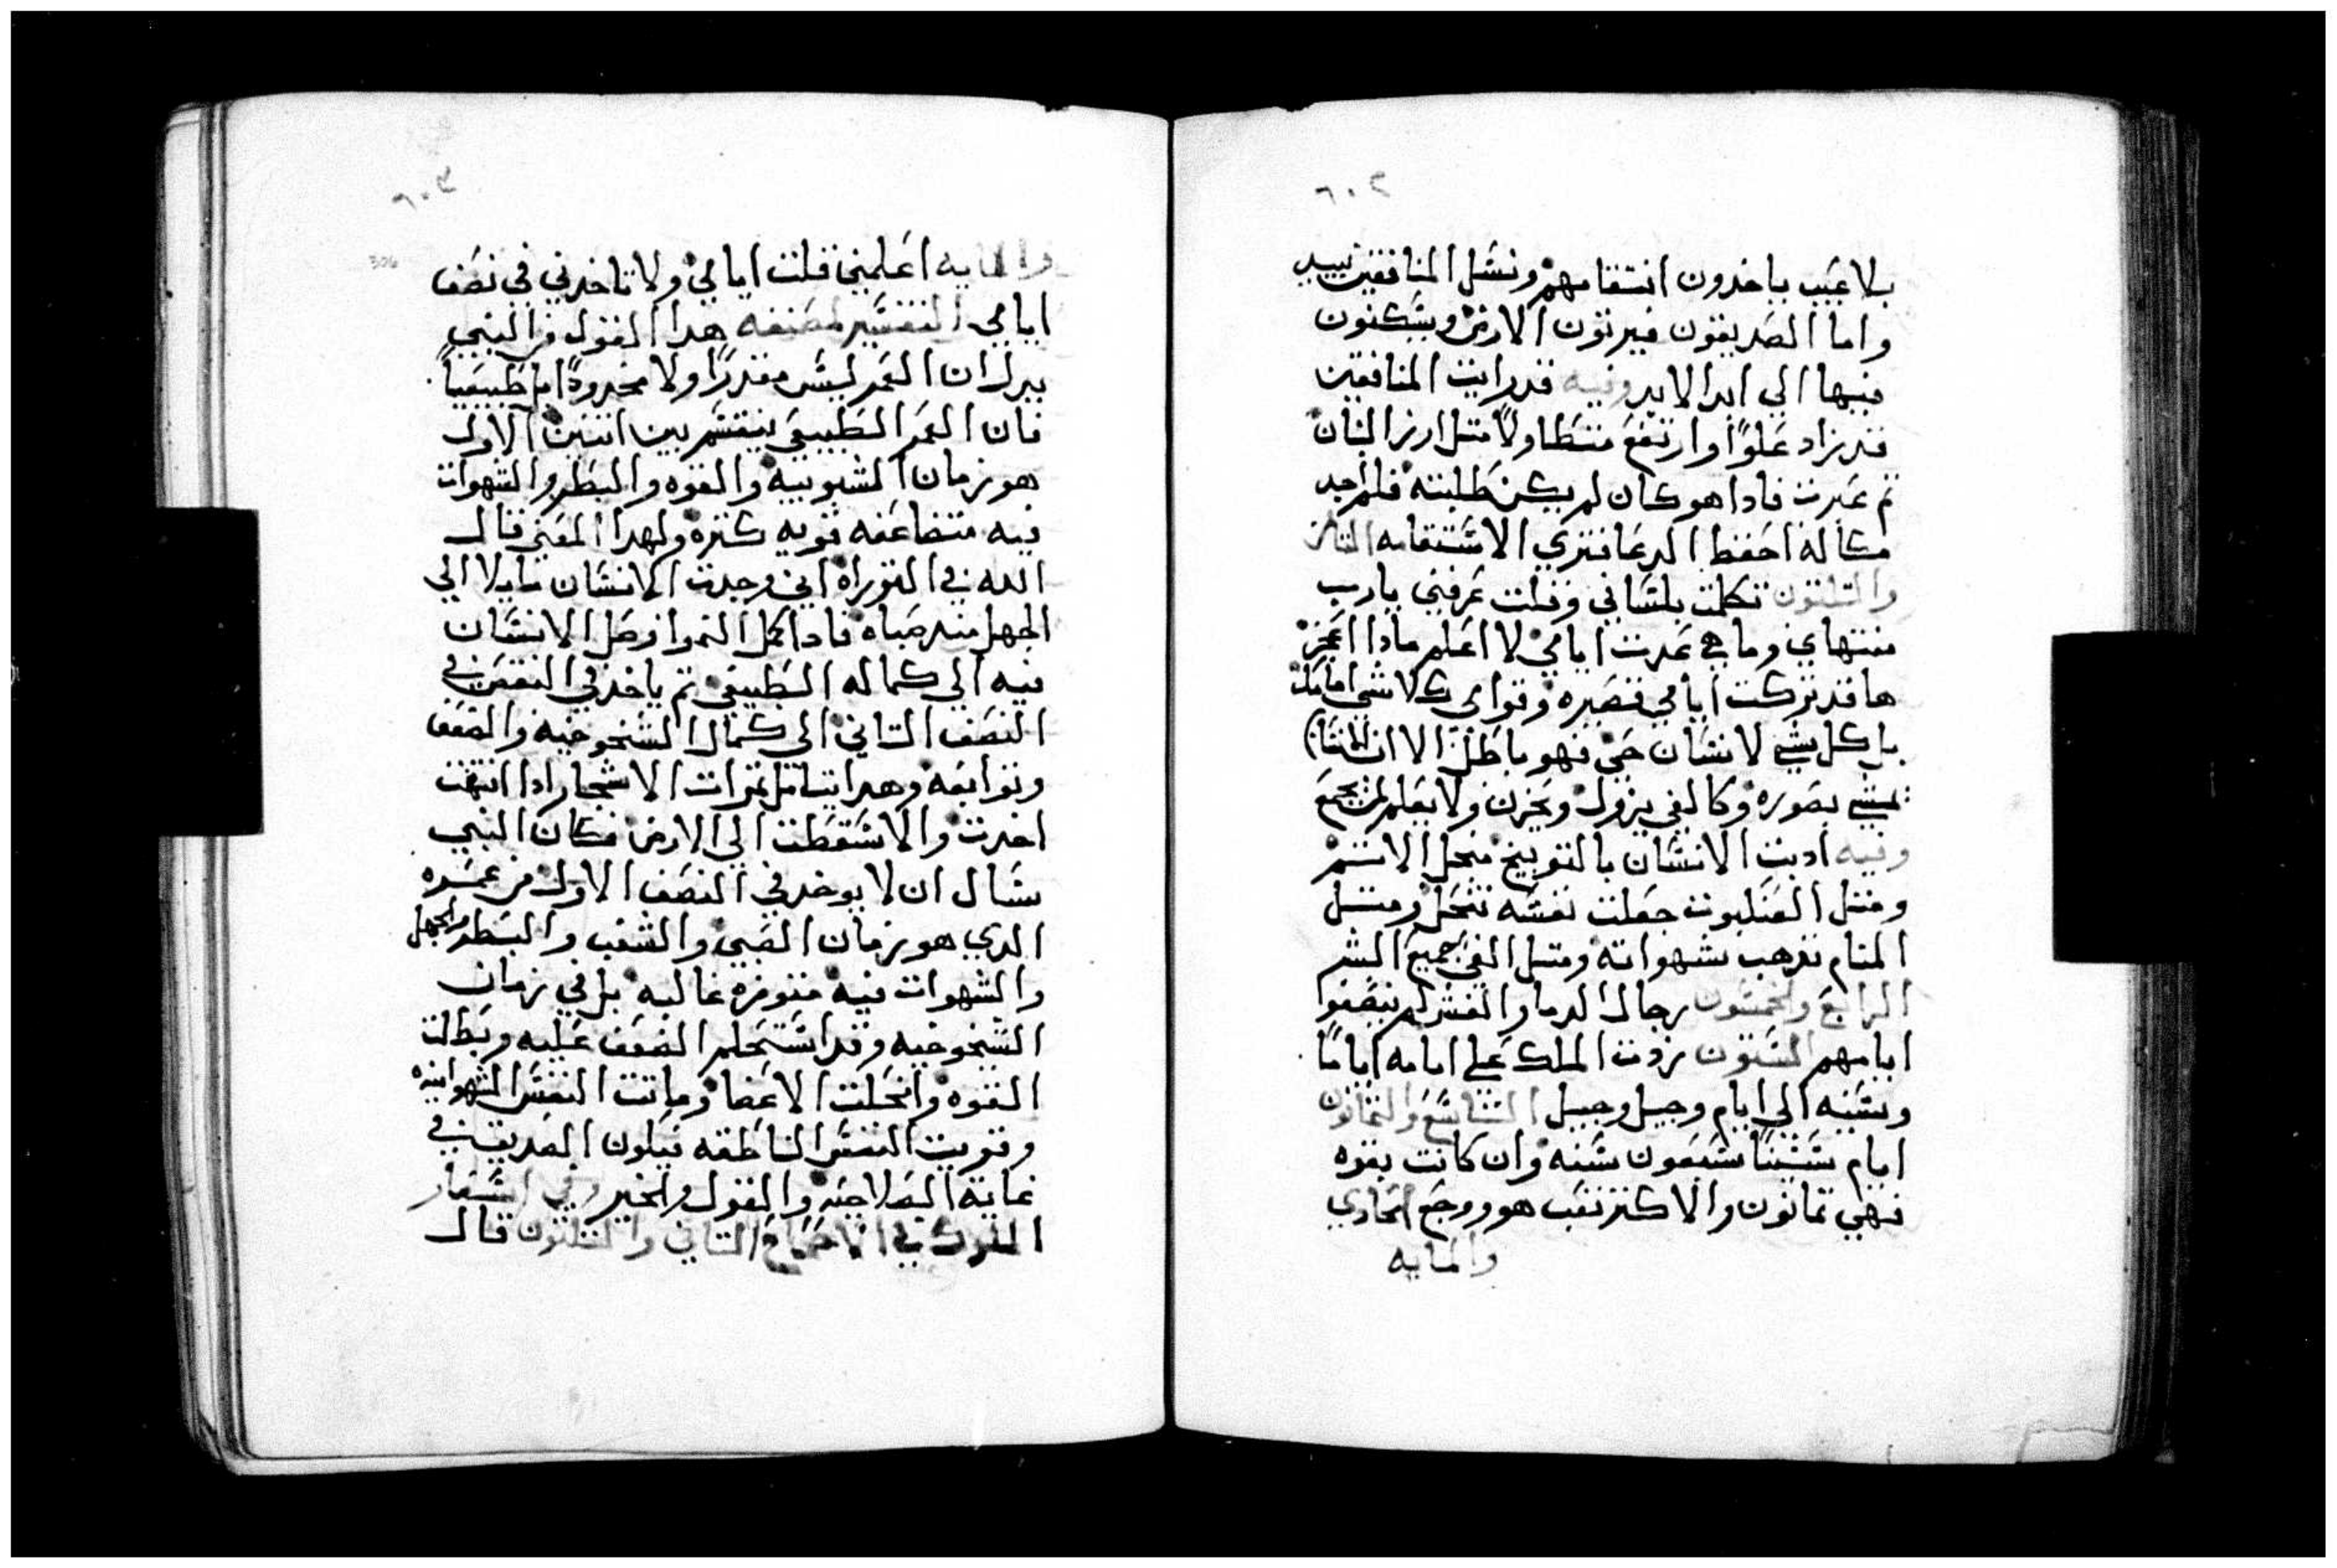 ٦٠٢
بلا عيب ياخدون انتقامهم ونسل المنافقين يبيد
واما الصديقون فيرثون الارض ويسكنون
فيها الي ابد الابد وفيه قد رايت المنافقين
قد زاد علوًا وارتفع متطاولاً مثل ارز البنان
تم عبرت فادا هو كان لم يكن طلبته فلم اجد
مكانه احفظ الدعا فتري الاستقامه التامن
والتلتون تكلمت بلساني وقلت عرفني يارب
منتهاي وما هي عدت ايامي لا اعلم مادا اعجز
ها قد تركت ايامي قصيره وقواي كلا شي امامك
بل كل شي لانسان حي فهو باطل الا ان الانسان
يمشي بصوره وكالفي يزول ويخزن ولا يعلم لمن يجمع
وفيه ادبت الانسان بالتوبيخ منجل الاتم
ومتل العنكبوت جعلت نفسه تنحل ومتل
المنام تدهب شهواته ومتل الفي جميع البشر
الرابع والخمسون رجال الدما والغش لم ينصفوا
ايامهم الستون زدت الملك علي ايامه اياماً
وسنيه الي ايام وجيل وجيل التاسع والتمانون
ايام سنينا سبعون سنه وان كانت بقوه
فهي تمانون والاكتر تعب هو ووجع الحادي
والمايه
٦٠٣
306
والمايه اعلمني قلت ايامي ولا تاخدني في نصف
ايامي التفسير لمصنفه هدا القول من النبي
يدل ان العمر ليس مقدراً ولا محدوداً اما طبيعياً
فان العمر الطبيعي ينقسم بين اتنين الاول
هو زمان الشبوبيه والقوه والبطر والشهوات
فيه متضاعفه قويه كتره ولهدا المعني قال
الله في التوراه اني وجدت الانسان مايلا الي
الجهل مند صباه فادا كمل النمو افرضل الانسان
فيه الي كماله الطبيعي تم ياخد في النقص في
النصف التاني الي كمال الشيخوخيه والضعف
وتوابعه وهدا يتامل تمرات الاشجار ادا انتهت
اخدت والا سقطت الي الارض فكان النبي
يسال ان لا يوخد في النصف الاول من عمره
الدي هو زمان الصبي والشغب والبطر والجهل
والشهوات فيه متوفره غالبه بل في زمان
الشيخوخيه وقد استحكم الضعف عليه وبطلت
القوه وانحلت الاعضا وماتت النفس الشهوانيه
وقويت النفس الناطقه فيكون الصديق في
غاية الصلاحيه والقول والخير وفي اسفار
الملوك في الاصحاح التاني والتلتون قال